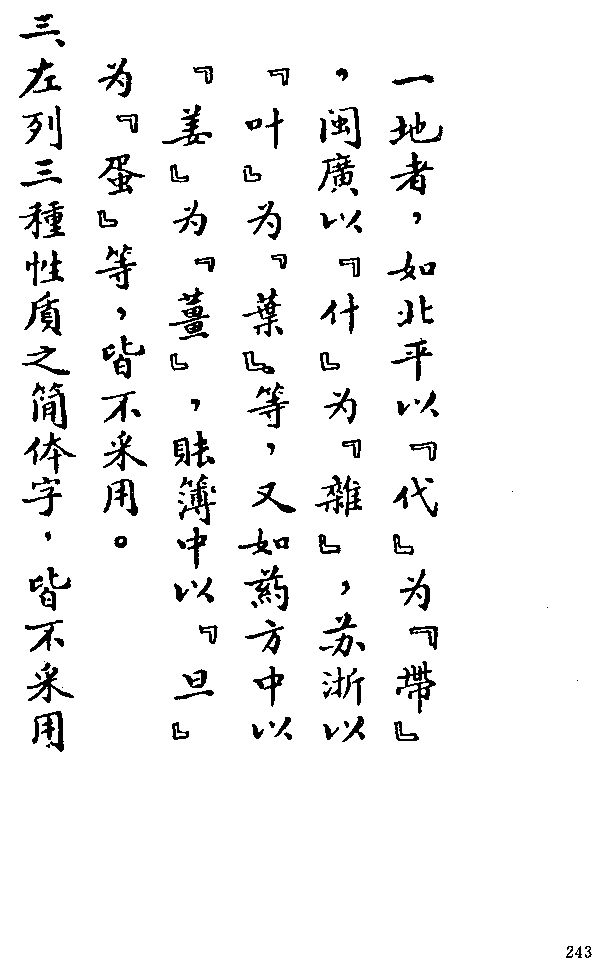 一地者，如北平以『代』为『帶』
，闽廣以『什』为『雜』，苏浙以
『叶』为『葉』。等，又如药方中以
『姜』为『薑』，账簿中以『旦』
为『蛋』等，皆不采用。
三、左列三種性质之简体字，皆不采用
243